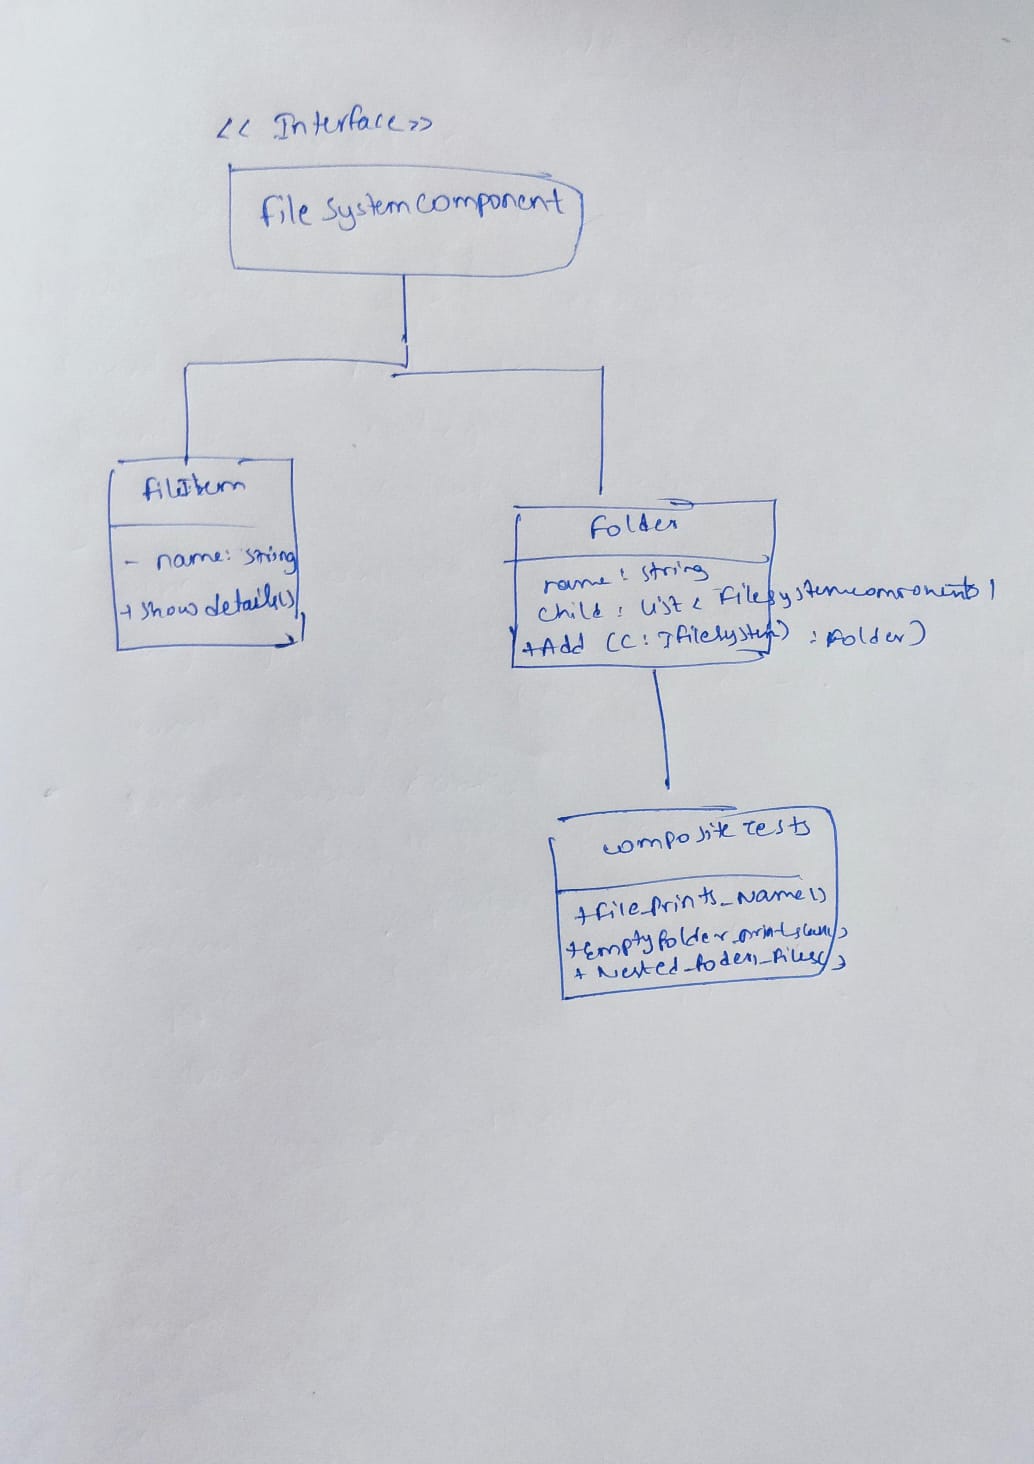 << Interface >>
file system component
fileItem
- name: string
+ show details()
Folder
name : string
child : list < Filesystemcomponents
+Add (C: IfileSystem) : Folder)
composite Tests
+ file_prints_Name()
+ Empty folder_prints
+ Nested_foders_files()